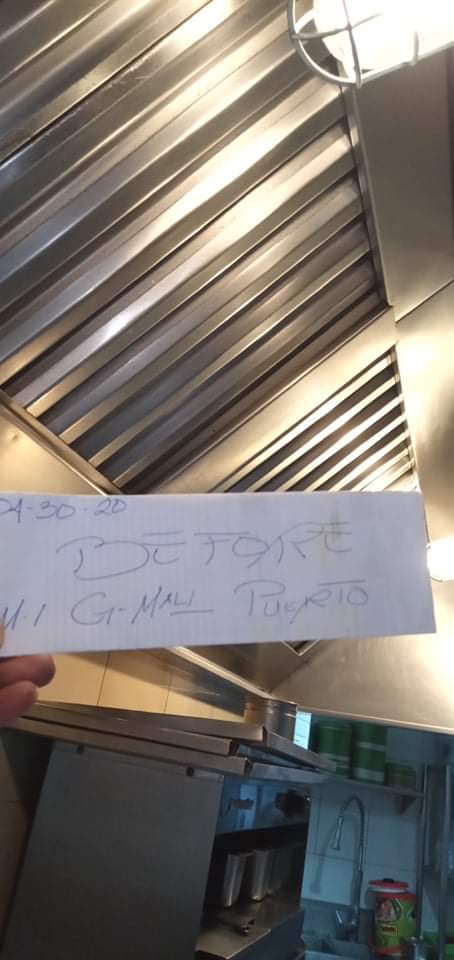 04-30-20
BEFORE
M.I G-MALL PUERTO